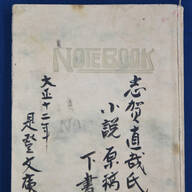 NOTEBOOK
志賀直哉氏
小説原稿
下書
大正十二年
是登文庫